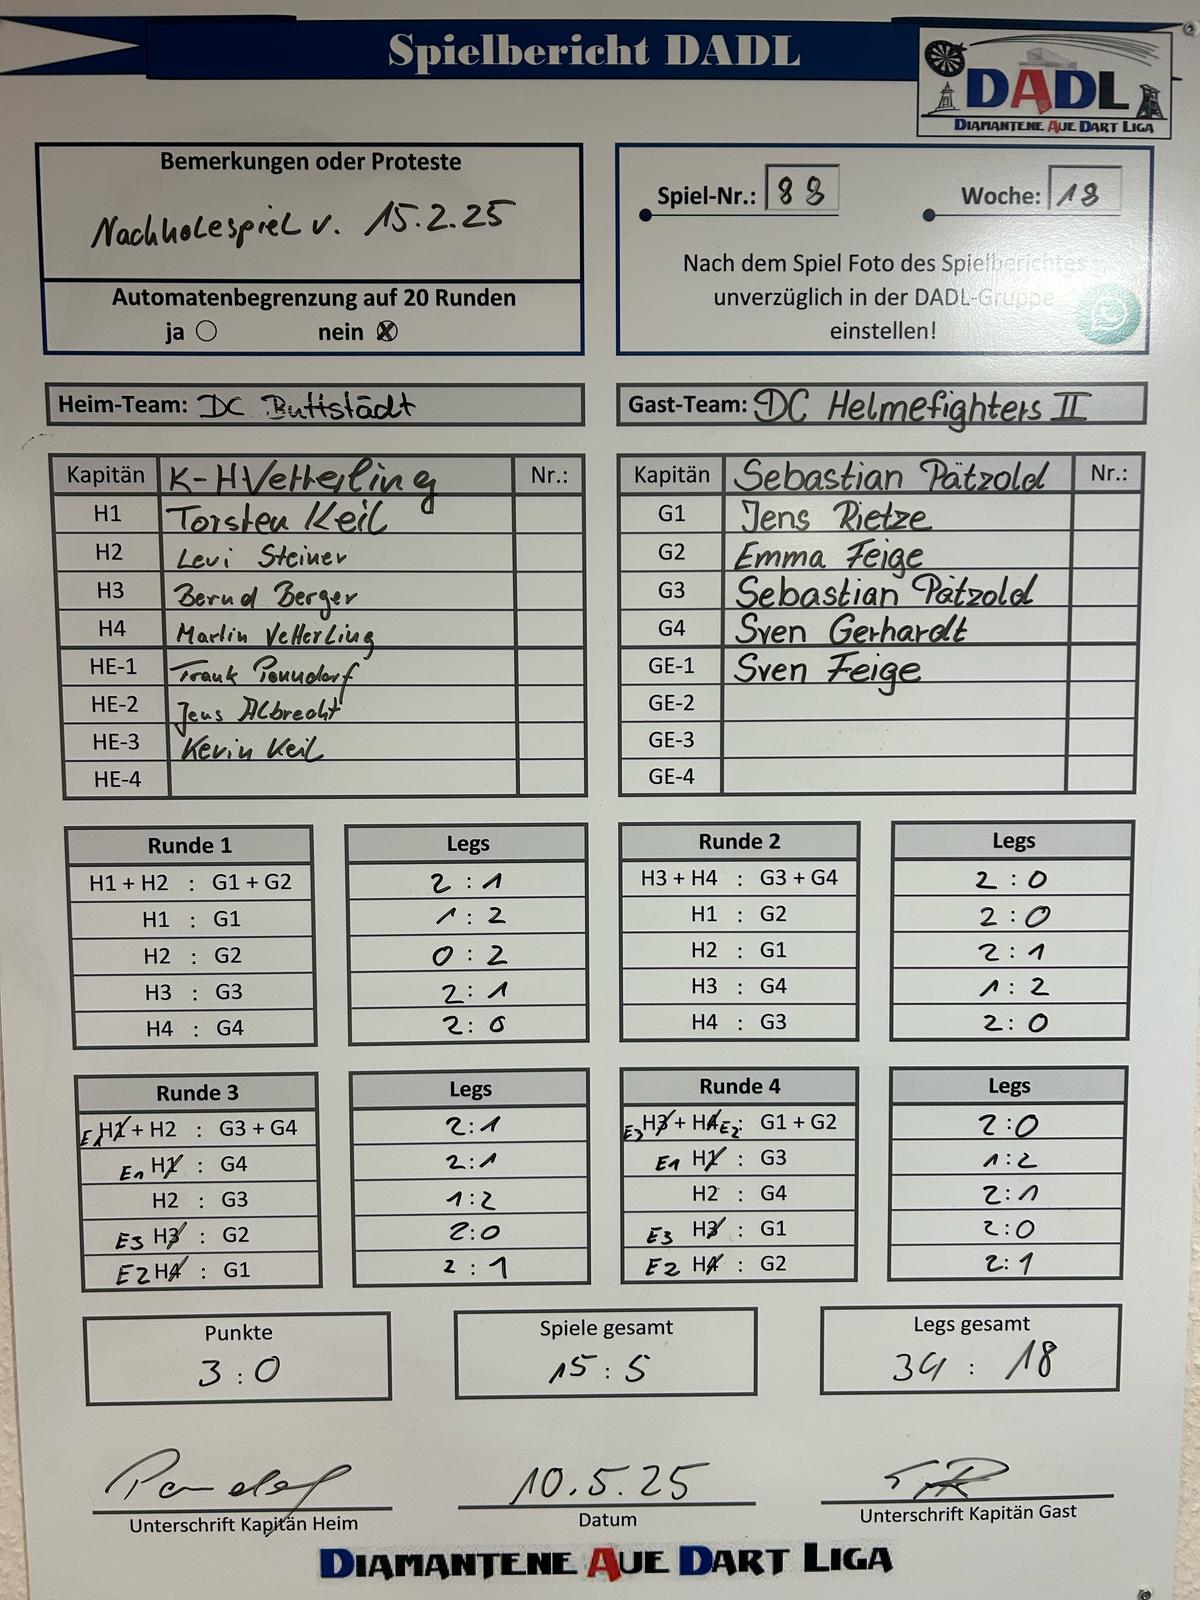 Spielbericht DADL
DADL
DIAMANTENE AUE DART LIGA
Bemerkungen oder Proteste
Nachholespiel v. 15.2.25
Automatenbegrenzung auf 20 Runden
ja nein
Spiel-Nr.: 88 Woche: 18
Nach dem Spiel Foto des Spielberichtes
unverzüglich in der DADL-Gruppe
einstellen!
Heim-Team: DC Buttstädt
Gast-Team: DC Helmefighters II
Kapitän K-H Vetterling Nr.:
H1 Torsten Keil
H2 Levi Steiner
H3 Bernd Berger
H4 Martin Vetterling
HE-1 Frank Ponndorf
HE-2 Jens Albrecht
HE-3 Kevin Keil
HE-4
Kapitän Sebastian Pätzold Nr.:
G1 Jens Rietze
G2 Emma Feige
G3 Sebastian Pätzold
G4 Sven Gerhardt
GE-1 Sven Feige
GE-2
GE-3
GE-4
Runde 1 Legs
H1 + H2 : G1 + G2 2 : 1
H1 : G1 1 : 2
H2 : G2 0 : 2
H3 : G3 2 : 1
H4 : G4 2 : 0
Runde 2 Legs
H3 + H4 : G3 + G4 2 : 0
H1 : G2 2 : 0
H2 : G1 2 : 1
H3 : G4 1 : 2
H4 : G3 2 : 0
Runde 3 Legs
E1 H1 + H2 : G3 + G4 2:1
E1 H1 : G4 2:1
H2 : G3 1:2
E3 H3 : G2 2:0
E2 H4 : G1 2 : 1
Runde 4 Legs
E3 H3 + H4 E2 : G1 + G2 2:0
E1 H1 : G3 1:2
H2 : G4 2:1
E3 H3 : G1 2:0
E2 H4 : G2 2:1
Punkte
3 : 0
Spiele gesamt
15 : 5
Legs gesamt
34 : 18
10.5.25
Unterschrift Kapitän Heim
Datum
Unterschrift Kapitän Gast
DIAMANTENE AUE DART LIGA